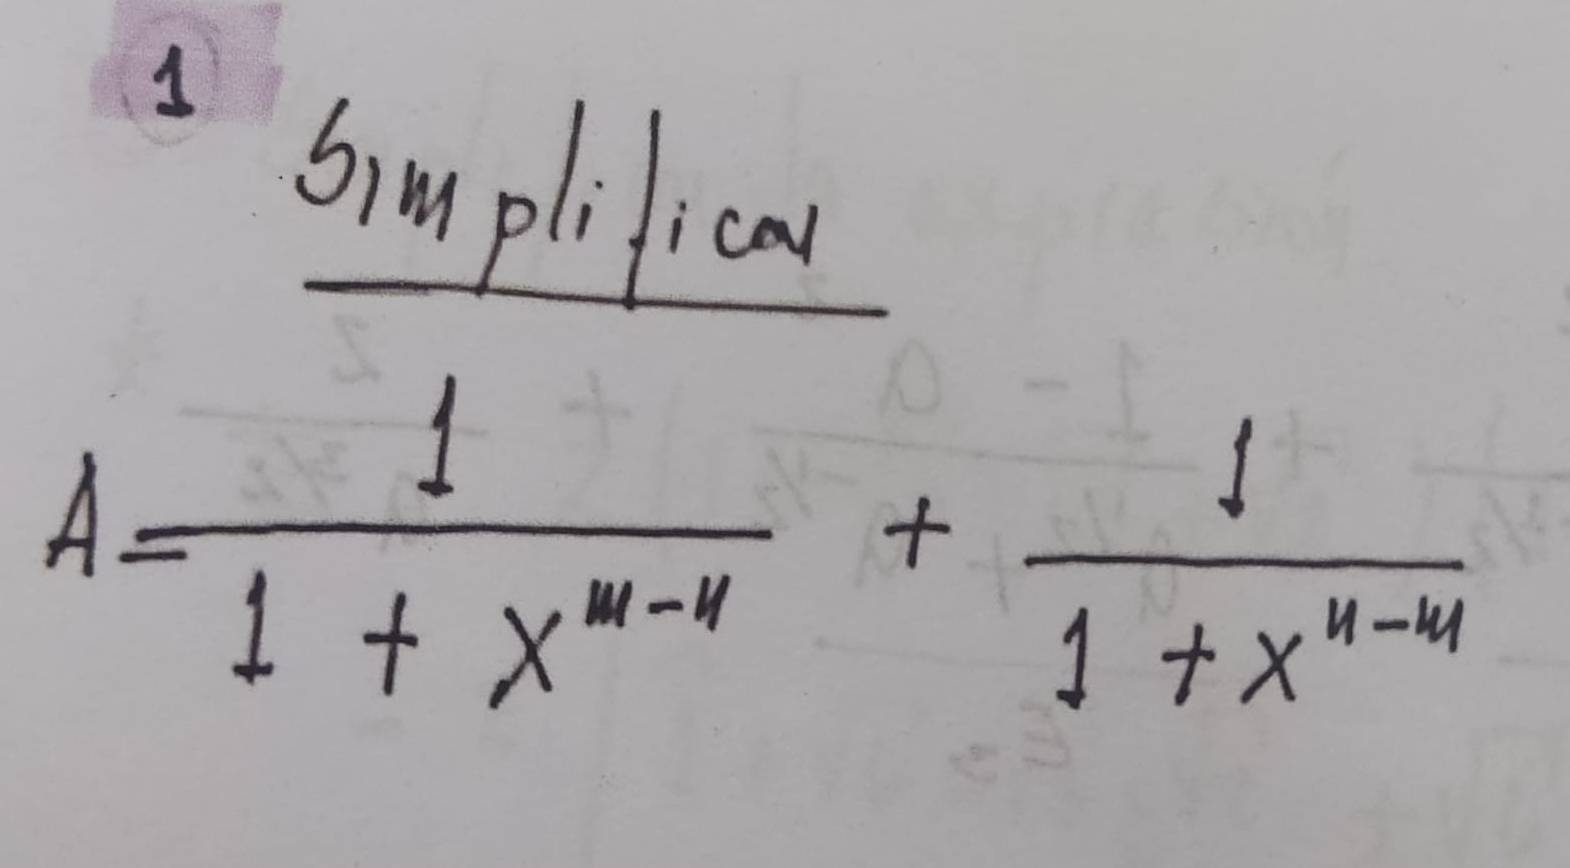 1
Simplificar
A = \frac{1}{1 + x^{m-n}} + \frac{1}{1 + x^{n-m}}